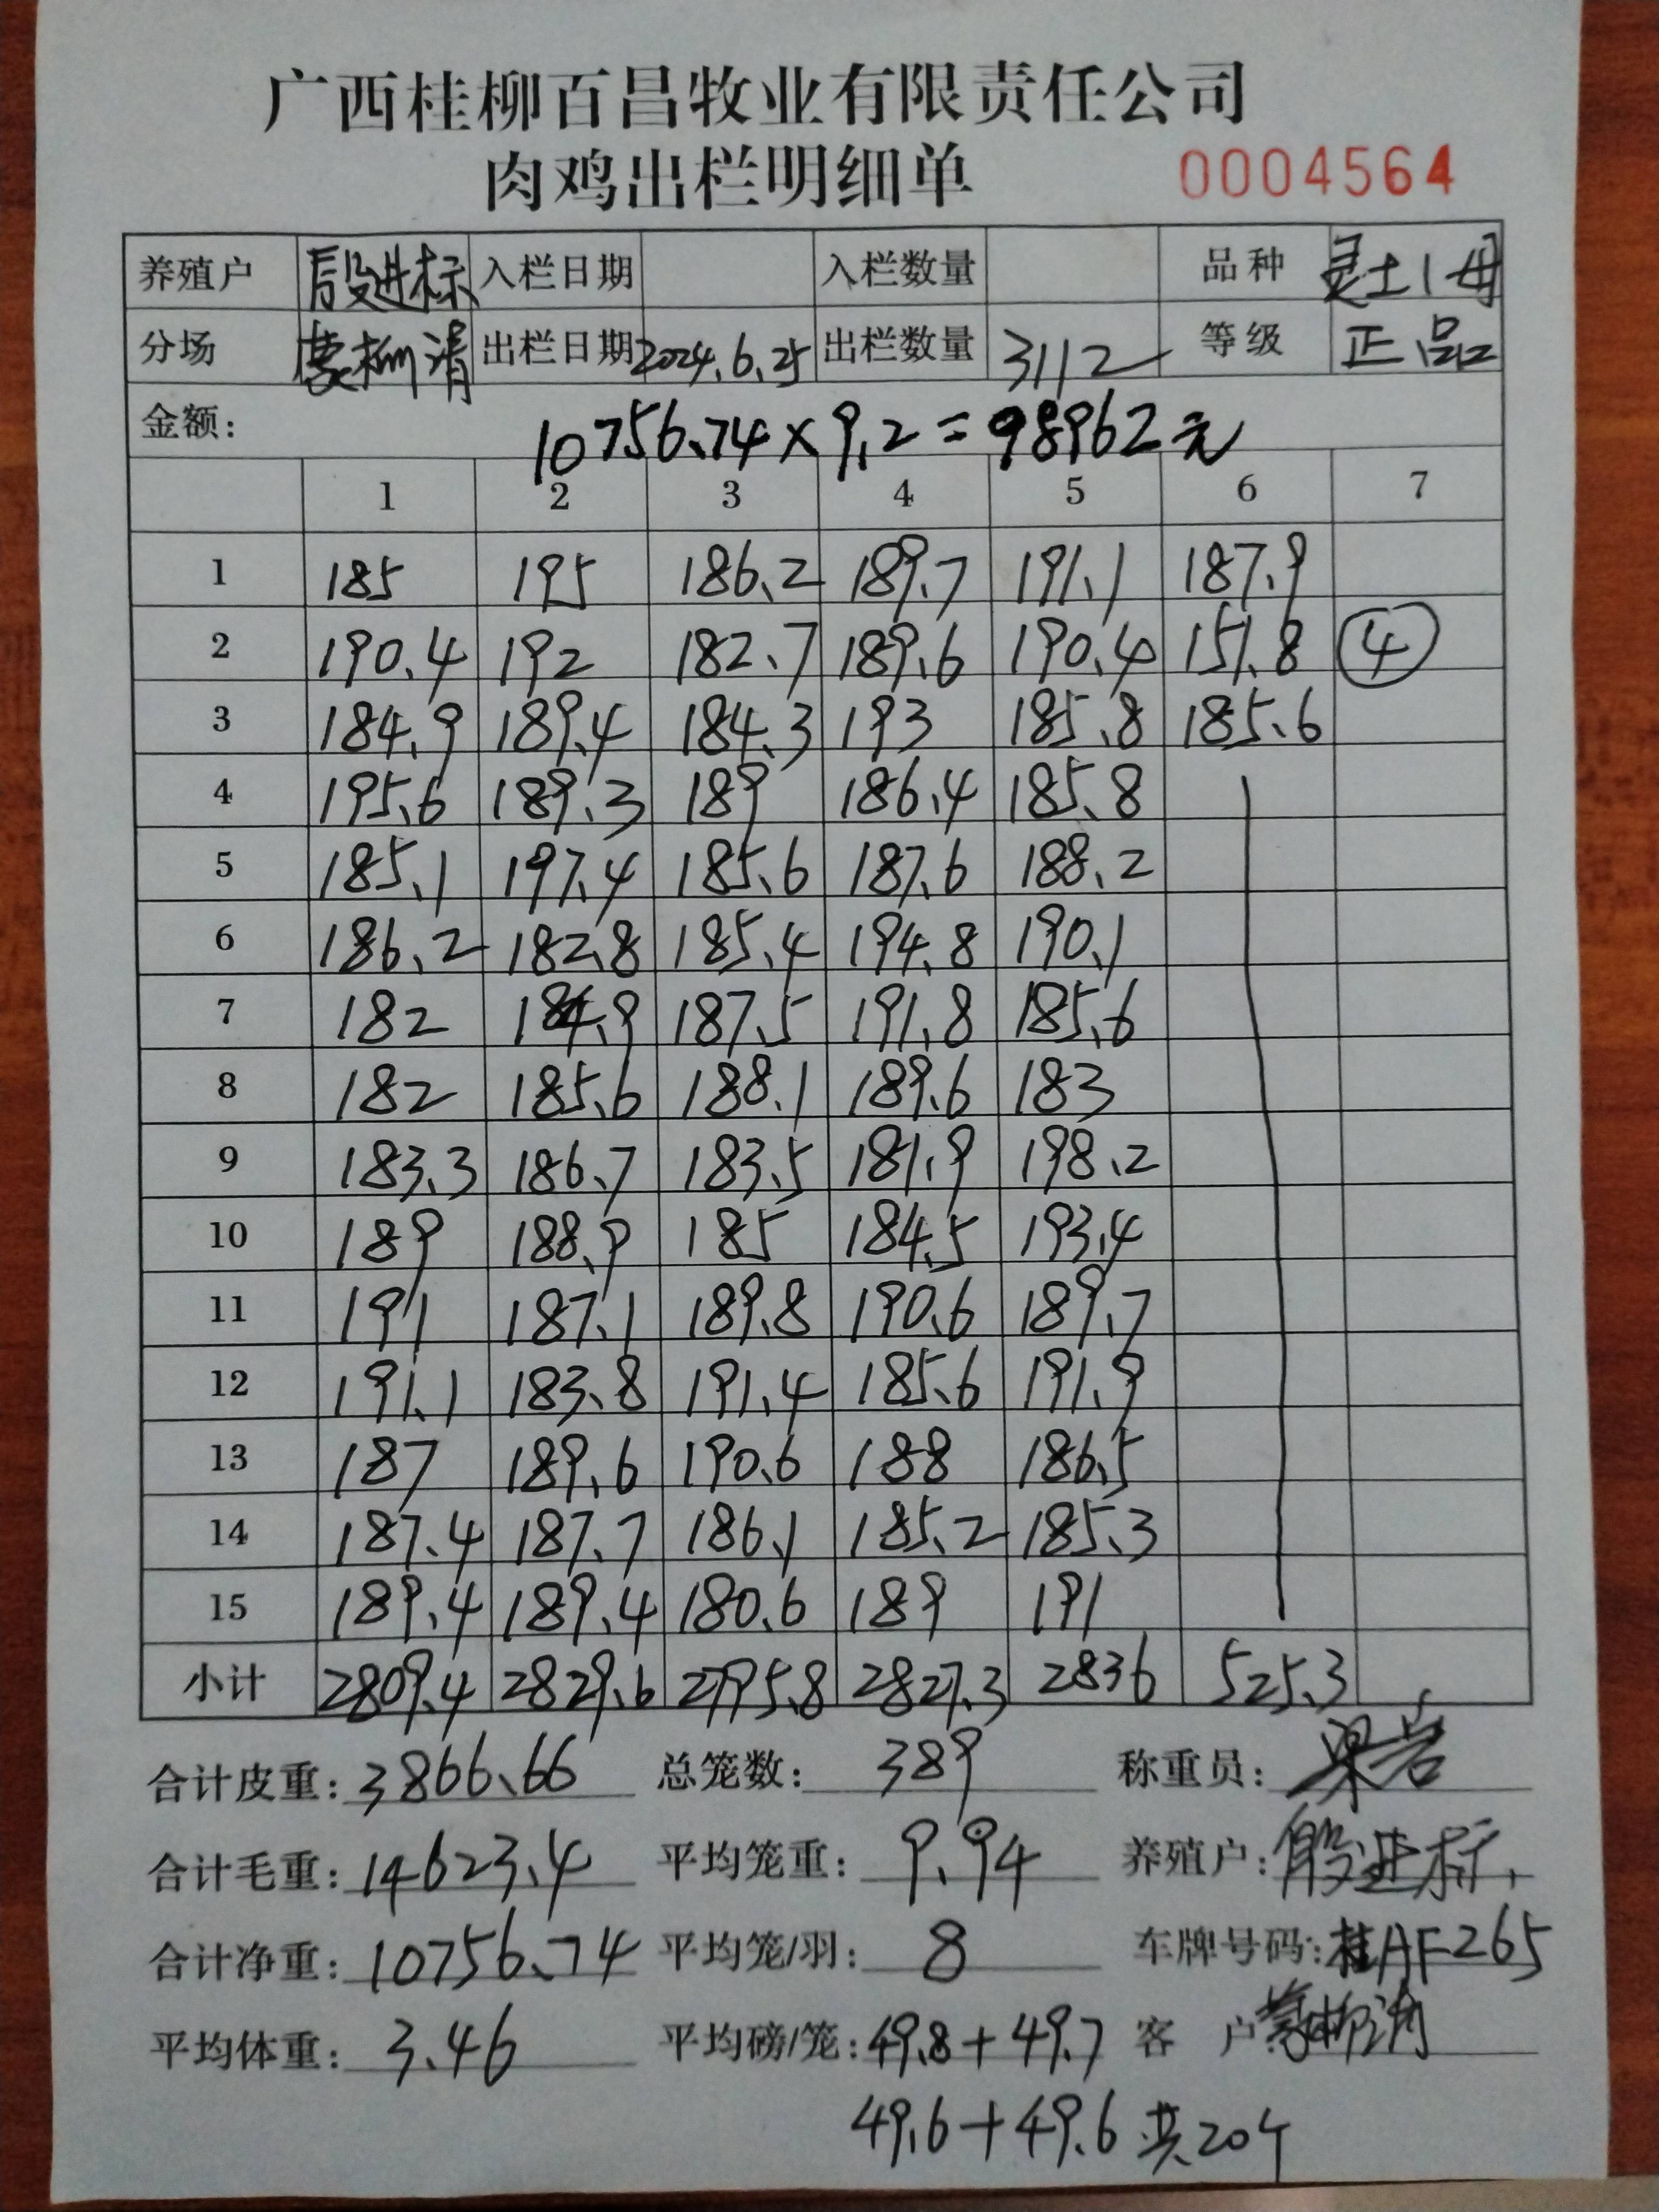 广西桂柳百昌牧业有限责任公司
肉鸡出栏明细单 0004564
养殖户 段进标 入栏日期 入栏数量 品种 灵土1母
分场 蒙柳清 出栏日期 2024.6.25 出栏数量 3112 等级 正品
金额: 10756.74×9.2=98962元
1 2 3 4 5 6 7
1 185 195 186.2 189.7 191.1 187.9
2 190.4 192 182.7 189.6 190.4 151.8 ④
3 184.9 189.4 184.3 193 185.8 185.6
4 195.6 189.3 189 186.4 185.8
5 185.1 197.4 185.6 187.6 188.2
6 186.2 182.8 185.4 194.8 190.1
7 182 184.9 187.5 191.8 185.6
8 182 185.6 188.1 189.6 183
9 183.3 186.7 183.5 181.9 198.2
10 189 188.9 185 184.5 193.4
11 191 187.1 189.8 190.6 189.7
12 191.1 183.8 191.4 185.6 191.9
13 187 189.6 190.6 188 186.5
14 187.4 187.7 186.1 185.2 185.3
15 189.4 189.4 180.6 189 191
小计 2809.4 2829.6 2795.8 2827.3 2836 525.3
合计皮重: 3866.66 总笼数: 389 称重员:
合计毛重: 14623.4 平均笼重: 9.94 养殖户: 段进标
合计净重: 10756.74 平均笼/羽: 8 车牌号码: 桂AF265
平均体重: 3.46 平均磅/笼: 49.8+49.7 客 户
49.6+49.6 共20个